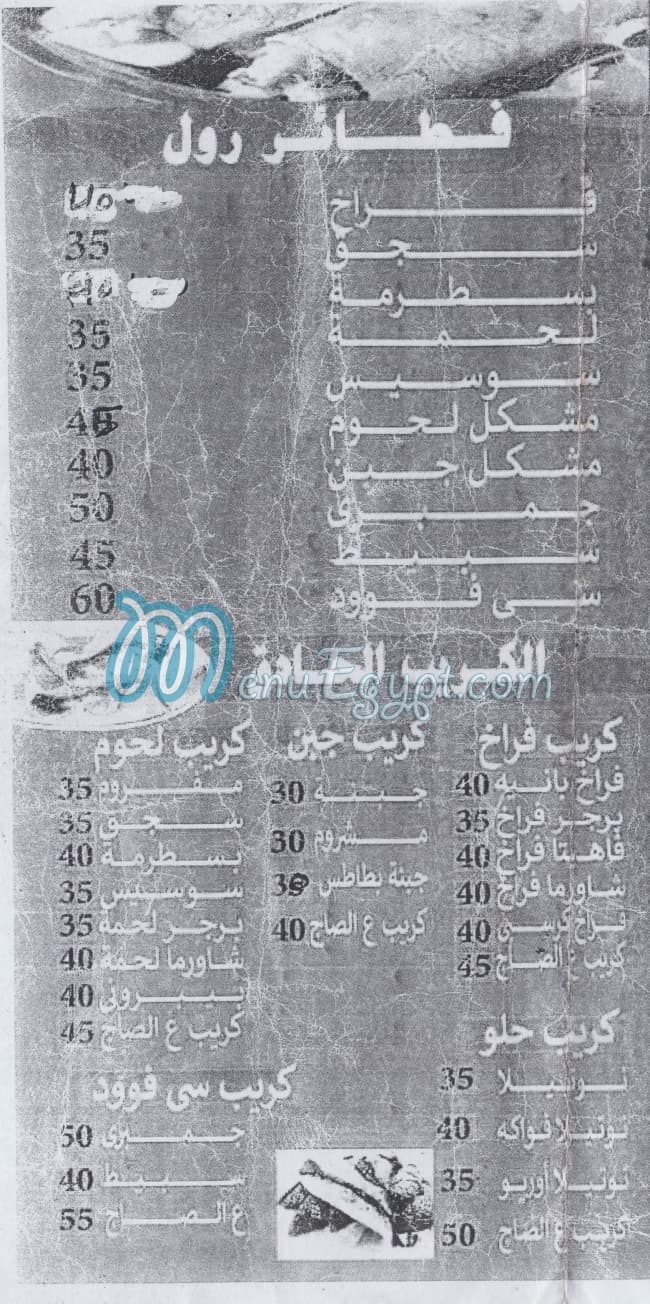 فطائر رول
فراخ
سجق 35
بسطرمة
لحمة 35
سوسيس 35
مشكل لحوم
مشكل جبن 40
جمبرى 50
سبيط 45
سى فوود 60
الكريب السادة
MenuEgypt.com
كريب فراخ
فراخ بانيه 40
برجر فراخ 35
فاهيتا فراخ 40
شاورما فراخ 40
فراخ كرسبى 40
كريب ع الصاج 45
كريب جبن
جبنه 30
مشروم 30
جبنة بطاطس
كريب ع الصاج 40
كريب لحوم
مفروم 35
سجق 35
بسطرمة 40
سوسيس 35
برجر لحمة 35
شاورما لحمة 40
بيبرونى 40
كريب ع الصاج 45
كريب حلو
نوتيلا 35
نوتيلا فواكه 40
نوتيلا أوريو 35
كريب ع الصاج 50
كريب سى فوود
جمبرى 50
سبيط 40
ع الصاج 55